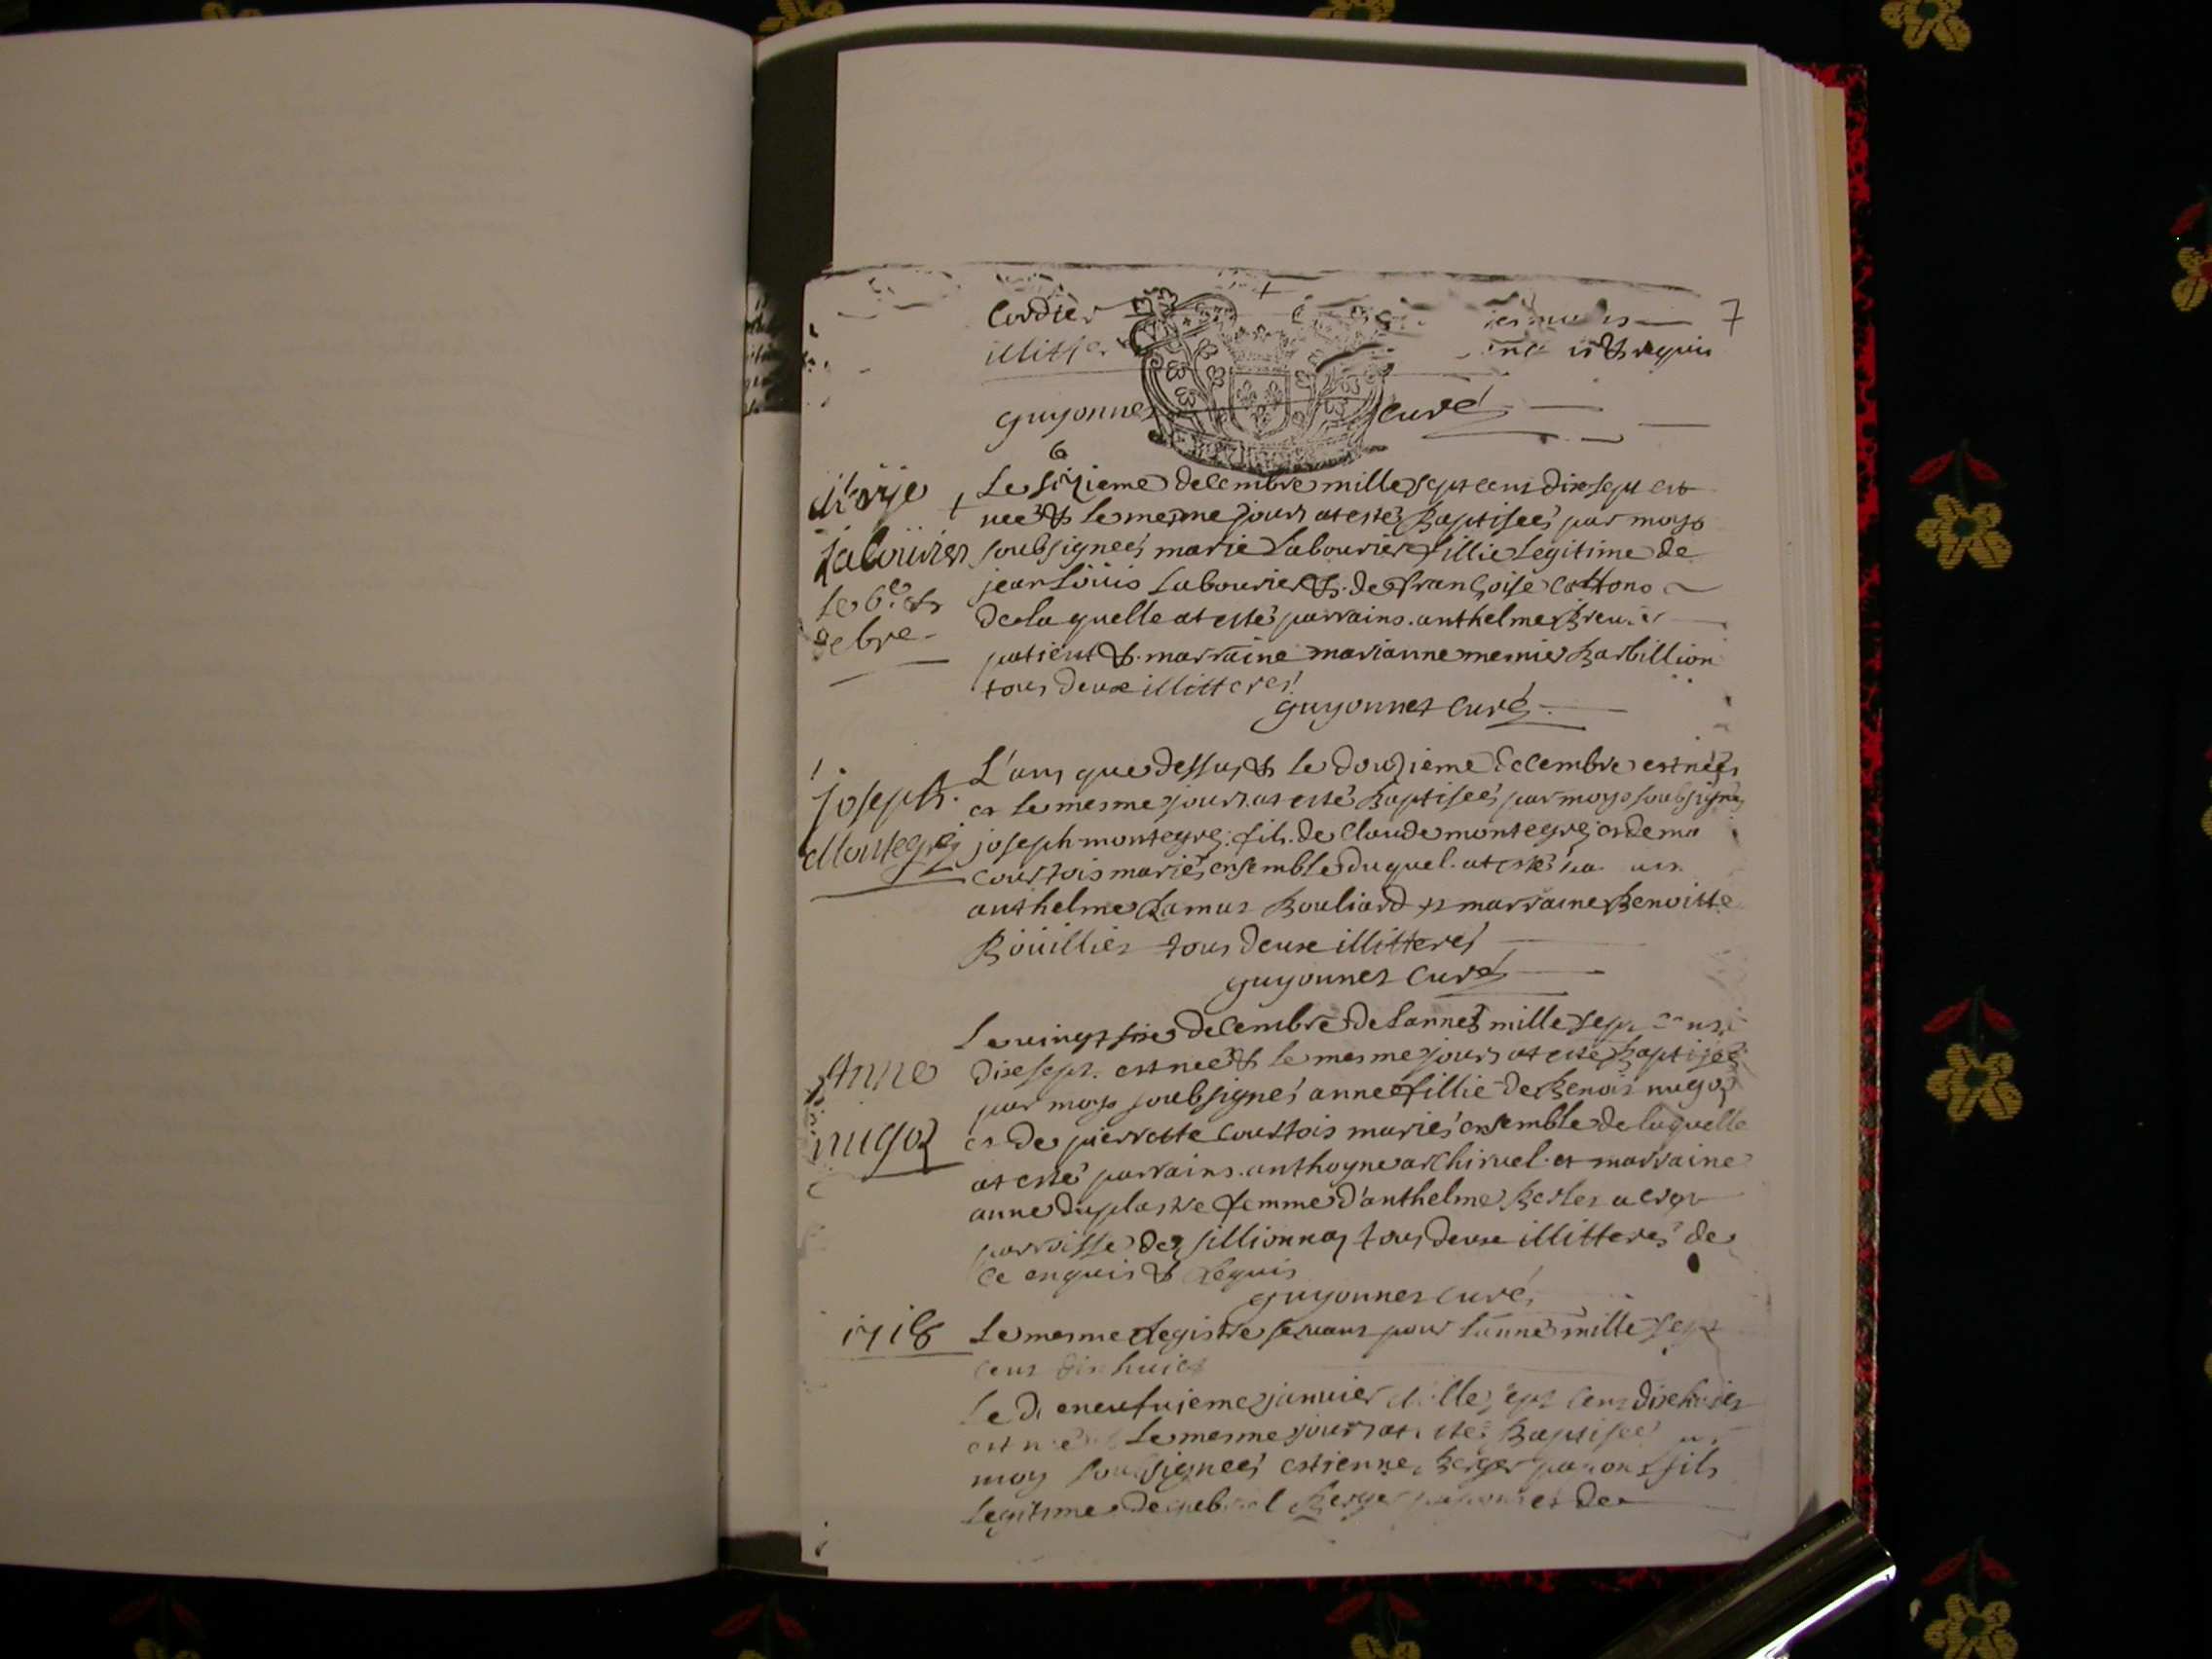 7
Cordier
illitter
& requis
guyonnet curé
6
Marie Labourier le 6e xbre
Le sizieme decembre mille sept cens dixsept est
née & le mesme jour at estée Baptisée par moy
soubsignée marie Labourier fillie Legitime de
jean Loüis Labourier & de françoise Cottons
de laquelle at esté parrains anthelme
patient & marraine marianne mernier Barbillion
tous deux illitteres
guyonnet curé
joseph Montegré
L'ans que dessus & le douzieme decembre est née
et le mesme jour at esté Baptisée par moy soubsigné
joseph montegre fils de Claude montegre et de ma
courtois mariés ensemble duquel at esté
anthelme Ramus Bouliard et marraine Benoitte
Boüillier tous deux illitteres
guyonnet curé
Anne nugoz
Le vingt six decembre de lanneé mille sept cens
dixsept est neé & le mesme jour at esté Baptiseé
par moy soubsigné anne fillie de Benoit nugoz
et de pierrette courtois mariés ensemble de laquelle
at esté parrains anthoyne archiruel et marraine
anne duplastre femme d'anthelme
parroisse de sillionnaz tous deux illitteres de
ce enquis & requis
guyonnet curé
1718
Le mesme Registre servant pour lanné mille sept
cens dix huict
Le dineufvieme janvier mille sept cens dixhuict
est né & le mesme jour at esté Baptisée
moy soubsigneé estienne Berger fils
Legitime de Berger et de